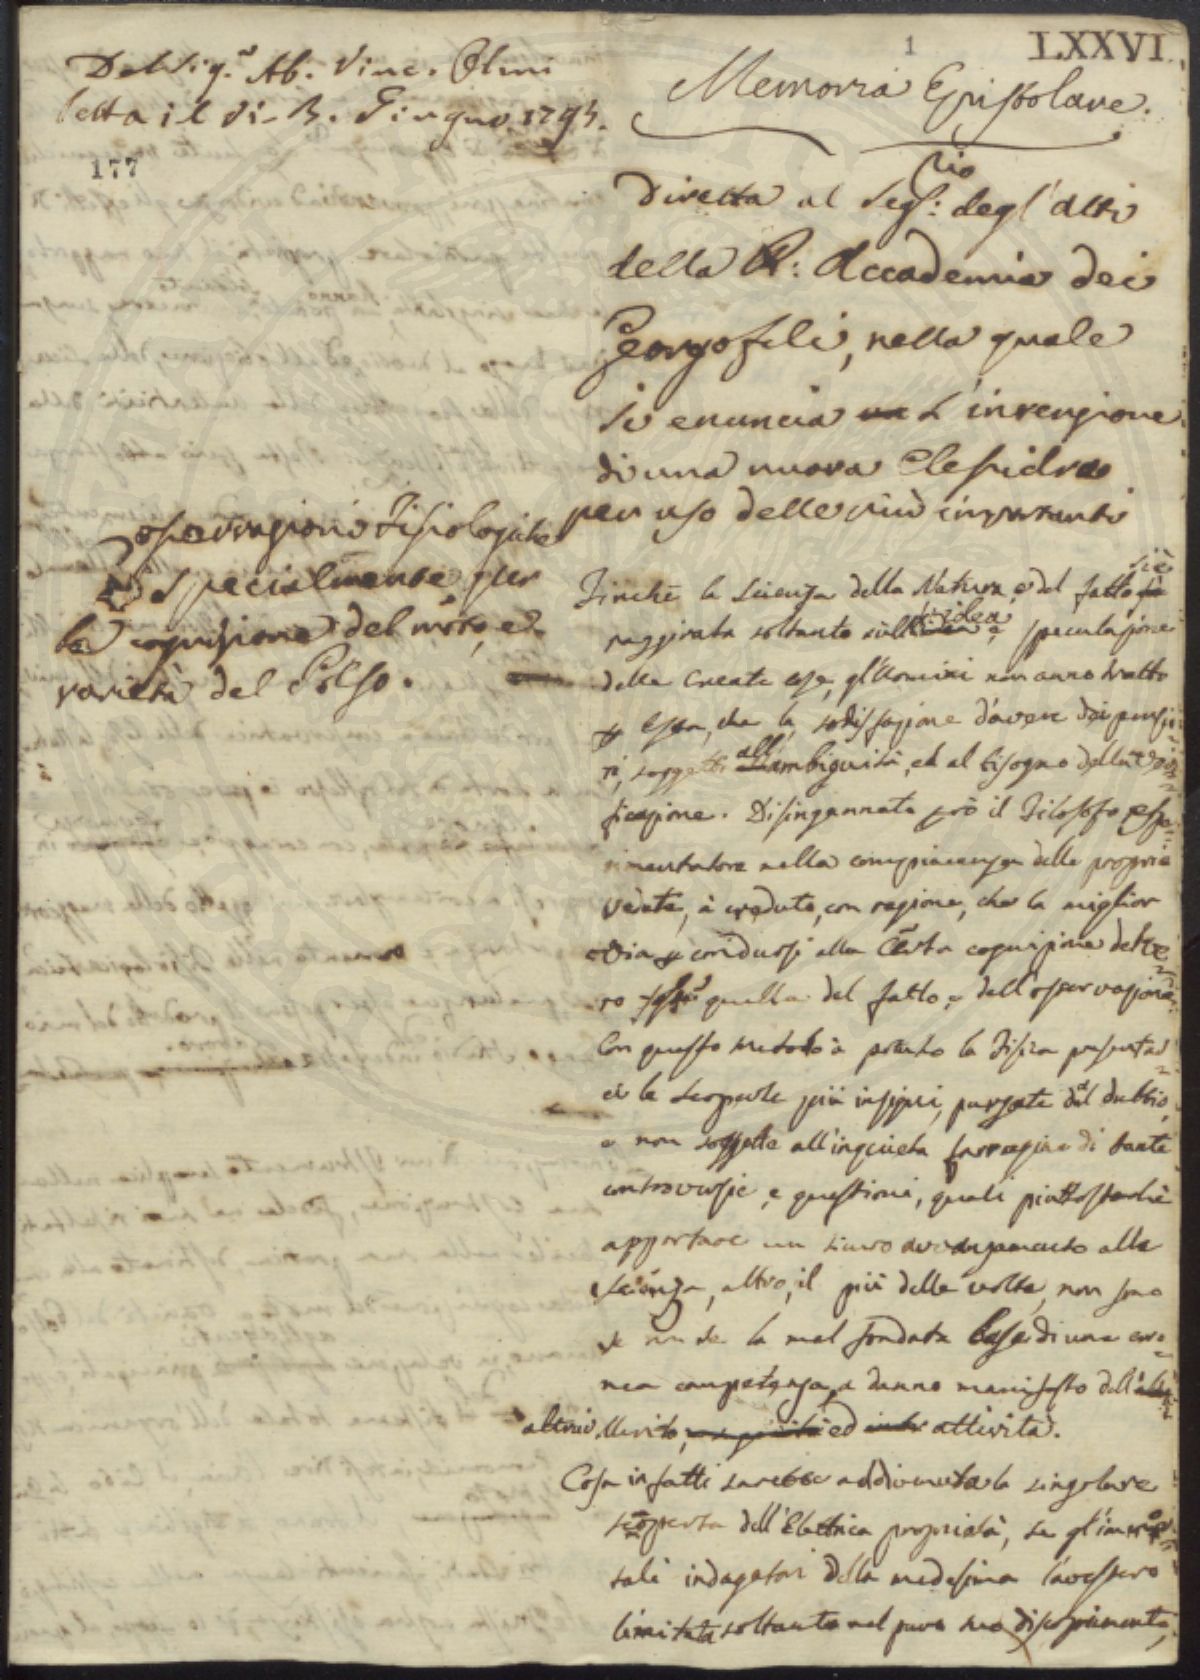 Del Sig.r Ab. Vinc. Chmi
letta il dì 3. Giugno 1795.
177
1
LXXVI.
Memoria Epistolare.
Diretta al Seg:rio degl'Atti
della R: Accademia dei
Georgofili, nella quale
si enuncia L'invenzione
di una nuova Clepsidra
per uso delle più importanti
osservazioni Fisiologiche
e specialmente per
la cognizione del moto, e
varietà del Polso.
Finchè la scienza della Natura, e del fatto si è
raggirata soltanto sull'idea e speculazione
delle create cose, gl'Uomini non anno tratto
p essa, che la sodisfazione d'avere dei pensie-
ri, soggetti all'ambiguità, ed al bisogno della veri-
ficazione. Disingannato però il Filosofo espe-
rimentatore nella compiacenza delle proprie
vedute, à creduto, con ragione, che la miglior
via p condursi alla certa cognizione del ve-
ro quella del fatto e dell'osservazione.
Con questo metodo à potuto la Fisica presentar-
ci le scoperte più insigni, purgate dal dubbio,
e non soggette all'inquieta farragine di tante
controversie, e questioni, quali piuttostochè
apportare un sicuro avanzamento alla
scienza, altro, il più delle volte, non sono
se non se la mal fondata base di una erro-
nea competenza, a danno manifesto dell'
altrui Merito, ed attività.
Cosa infatti sarebbe addivenuta la singolare
scoperta dell'Elettrica proprietà, se gl'immor-
tali indagatori della medesima l'avessero
limitata soltanto nel puro suo discoprimento,